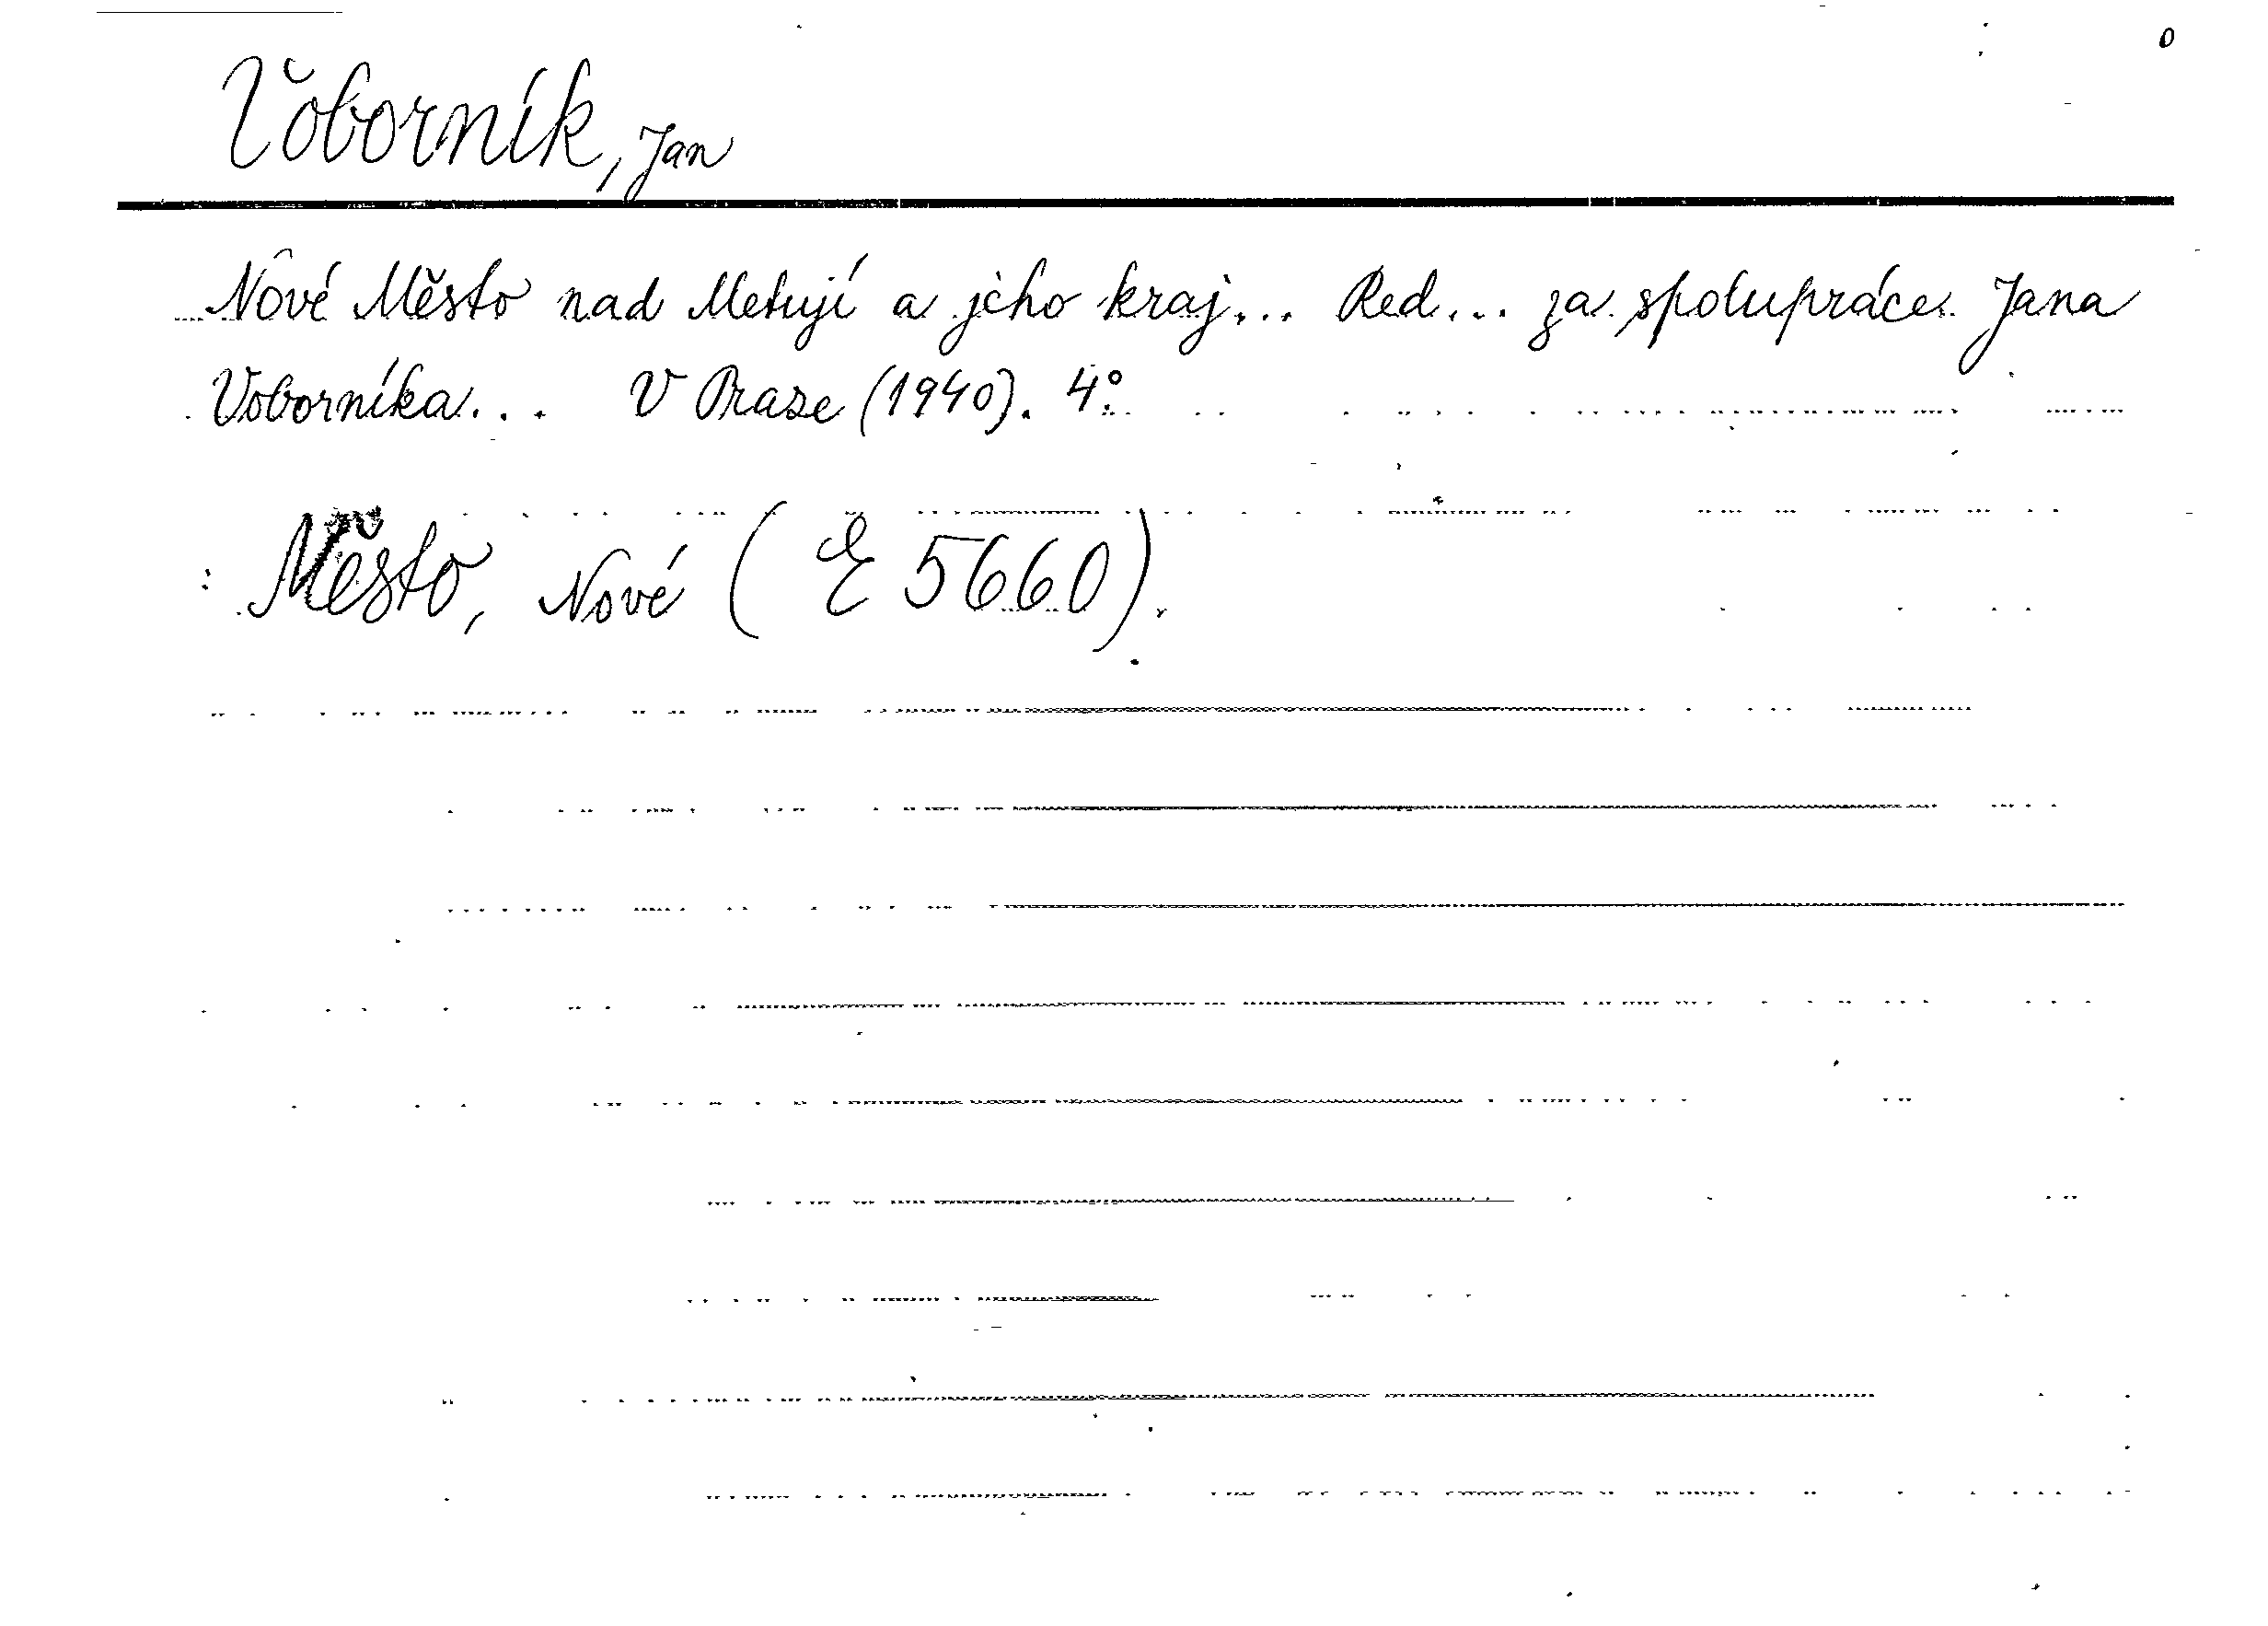 Voborník, Jan
Nové Město nad Metují a jeho kraj... Red... za spolupráce Jana
Voborníka... V Praze (1940). 4°.
: Město, Nové (E 5660).